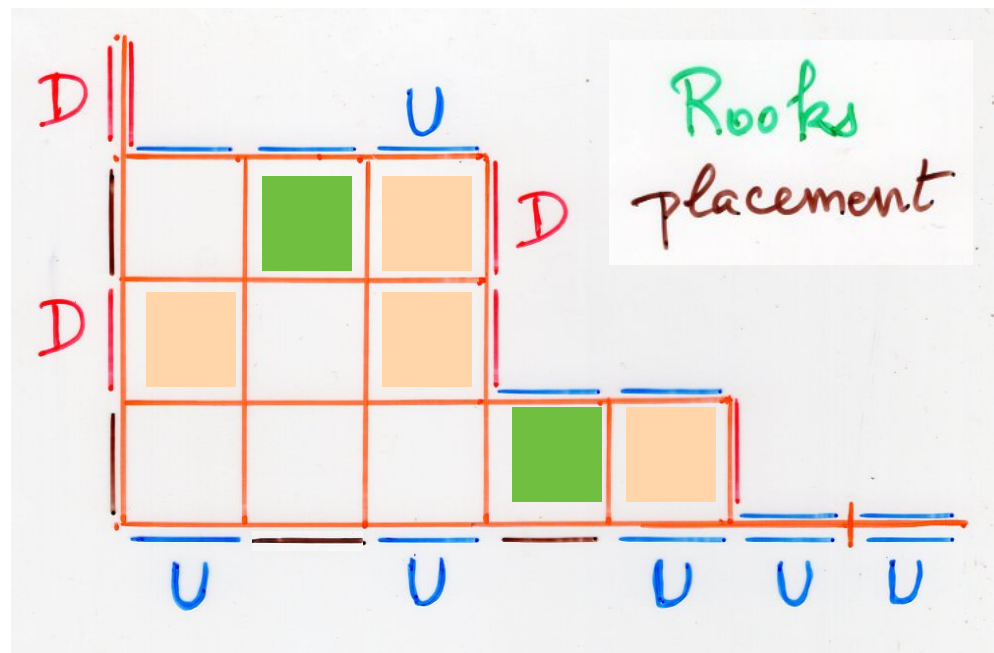 D
U
Rooks
placement
D
D
U
U
U
U
U